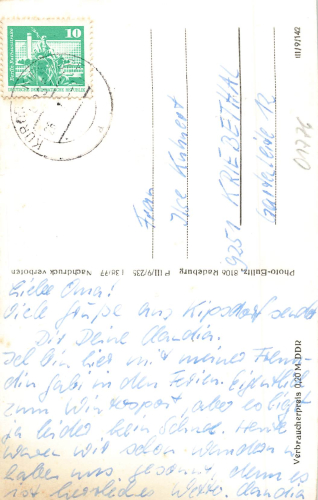 10
DEUTSCHE DEMOKRATISCHE REPUBLIK
KUR
III/9/142
01776
Frau
Ilse Kühnert
9251 KRIEBETHAL
12
Photo-Bullitz, 8106 Radeburg P III/9/235 I 36/77 Nachdruck verboten
Verbraucherpreis 0,20 M-DDR
Liebe Oma!
Viele Grüße aus Kipsdorf sendet
Dir Deine Claudia.
Ich bin hier mit meiner Freun-
din Gabi in den Ferien. Eigentlich
zum Wintersport, aber es liegt
ja leider kein Schnee. Heute
waren wir schon wandern u.
haben uns gesonnt, denn es
ist herrliches Wetter. Claudia